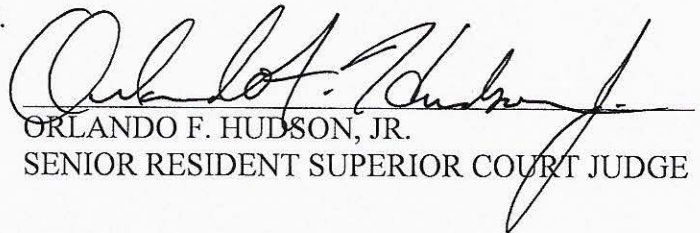 Orlando F. Hudson Jr.
ORLANDO F. HUDSON, JR.
SENIOR RESIDENT SUPERIOR COURT JUDGE